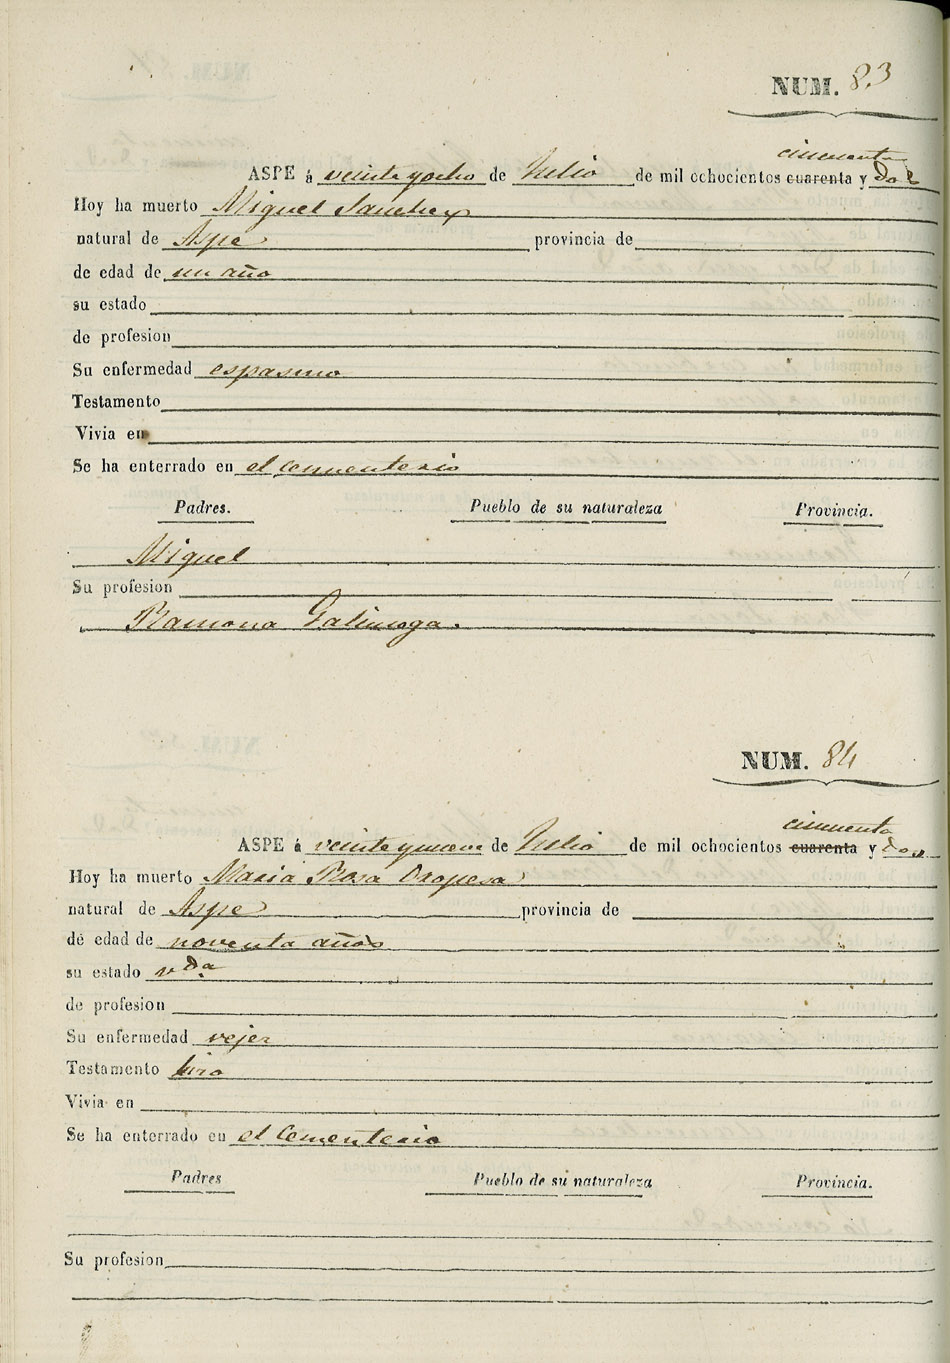 NUM. 83
cincuenta
ASPE á veinte y ocho de Julio de mil ochocientos cuarenta y dos
Hoy ha muerto Miguel Sanchez
natural de Aspe provincia de
de edad de un año
su estado
de profesion
Su enfermedad espasmo
Testamento
Vivia en
Se ha enterrado en el cementerio
Padres. Pueblo de su naturaleza Provincia.
Miguel
Su profesion
Ramona Galinsoga.
NUM. 84
cincuenta
ASPE á veinte y nueve de Julio de mil ochocientos cuarenta y dos
Hoy ha muerto Maria Rosa Oropesa
natural de Aspe provincia de
de edad de noventa años
su estado vda
de profesion
Su enfermedad vejez
Testamento hizo
Vivia en
Se ha enterrado en el Cementerio
Padres Pueblo de su naturaleza Provincia.
Su profesion